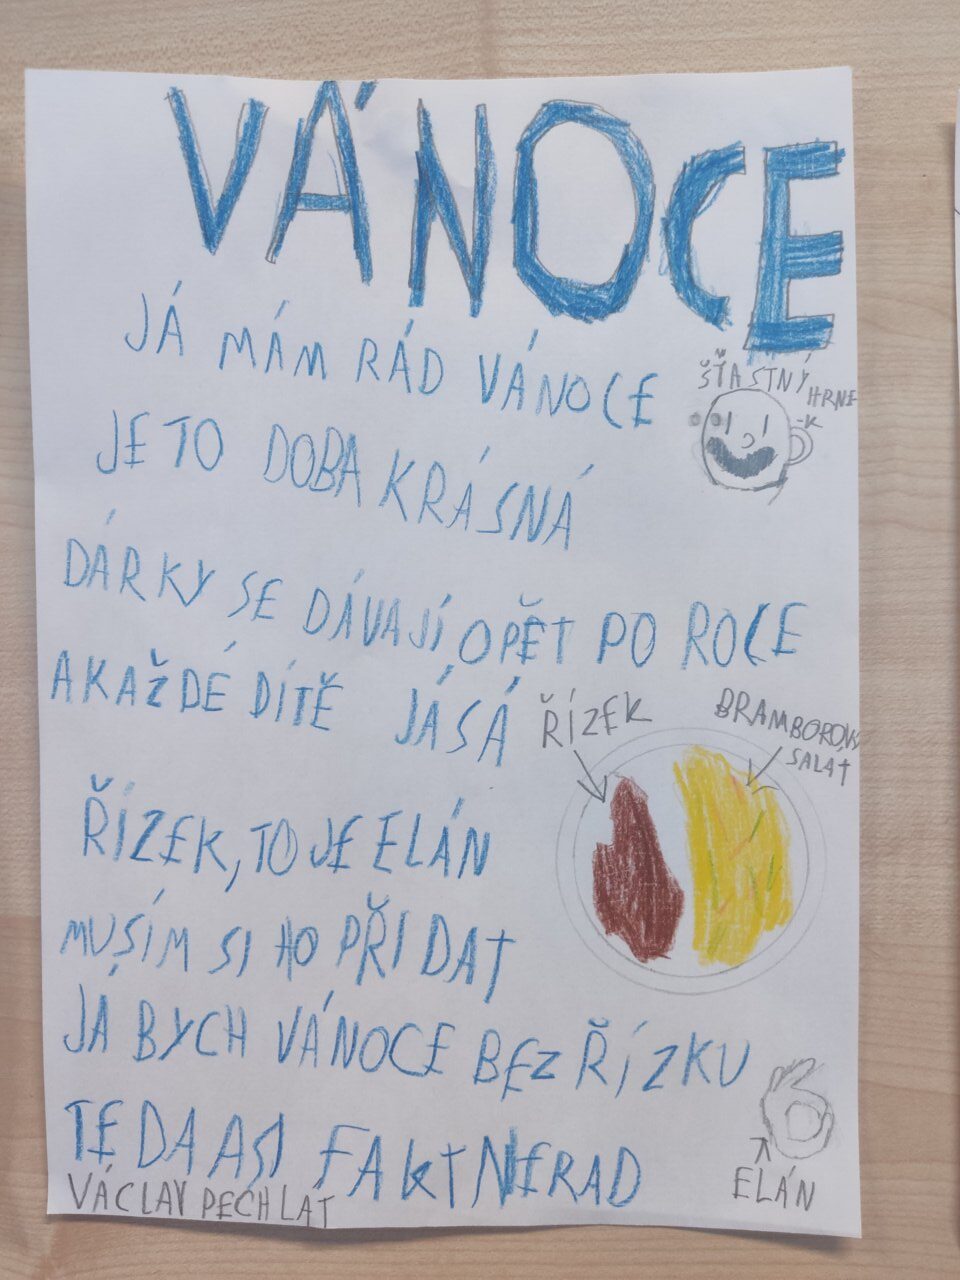 VÁNOCE
JÁ MÁM RÁD VÁNOCE
ŠŤASTNÝ
HRNE
-K
JE TO DOBA KRÁSNÁ
DÁRKY SE DÁVAJÍ, OPĚT PO ROCE
A KAŽDÉ DÍTĚ JÁSÁ
ŘÍZEK
BRAMBOROVÝ
SALÁT
ŘÍZEK, TO JE ELÁN
MUSÍM SI HO PŘIDAT
JA BYCH VÁNOCE BEZ ŘÍZKU
TEDA ASI FAKT NERAD
ELÁN
VÁCLAV PECHLAT